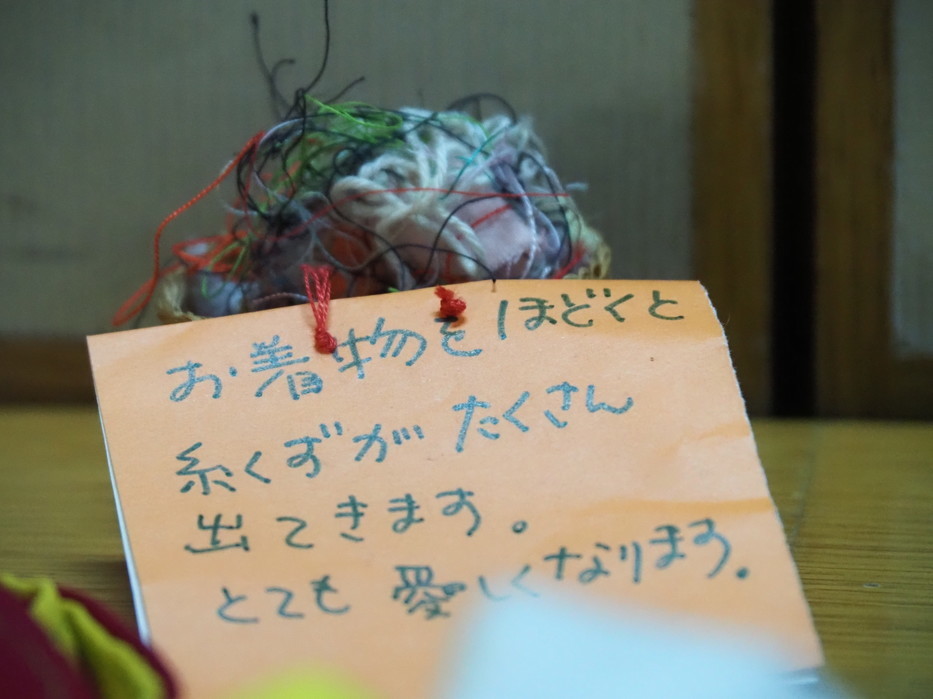 お着物をほどくと
糸くずがたくさん
出てきます。
とても愛しくなります。